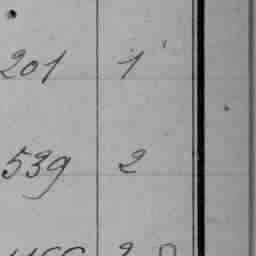 201 1
539 2